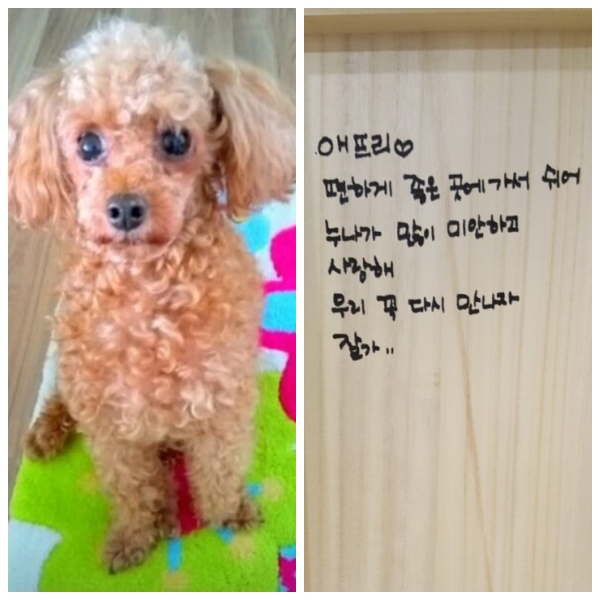 애프리♡
편하게 좋은 곳에가서 쉬어
누나가 많이 미안하고
사랑해
우리 꼭 다시 만나자
잘가..